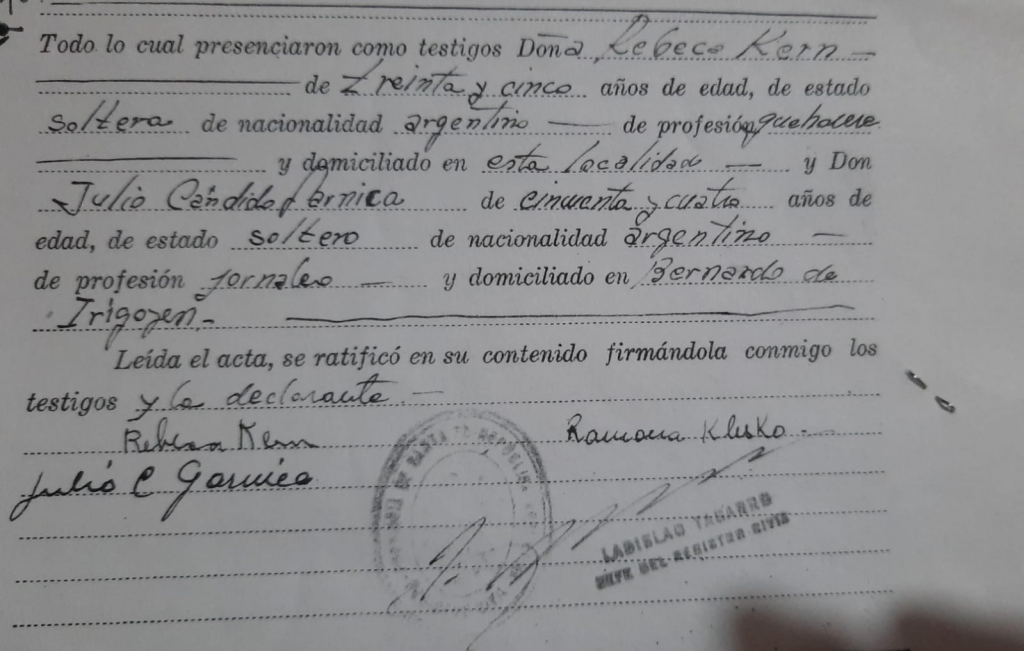 Todo lo cual presenciaron como testigos Doña Rebeca Kern —
de treinta y cinco años de edad, de estado
soltera de nacionalidad argentino — de profesión quehacere
y domiciliado en esta localidad — y Don
Julio Cándido Garnica de cincuenta y cuatro años de
edad, de estado soltero de nacionalidad argentino —
de profesión jornalero — y domiciliado en Bernardo de
Irigoyen.-
Leída el acta, se ratificó en su contenido firmándola conmigo los
testigos y la declarante.—
Rebeca Kern Ramona Klisko.-
Julio C Garnica
DE SANTA FE REPUBLICA
LADISLAO TABARRO
JEFE DEL REGISTRO CIVIL